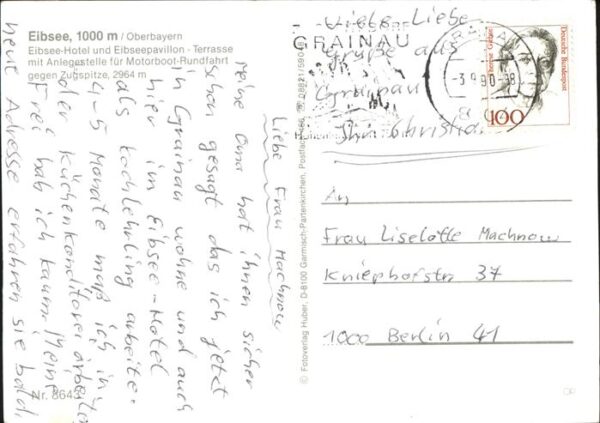 Eibsee, 1000 m / Oberbayern
Eibsee-Hotel und Eibseepavillon - Terrasse
mit Anlegestelle für Motorboot-Rundfahrt
gegen Zugspitze, 2964 m
Liebe Frau Machnow
meine Oma hat ihnen sicher
schon gesagt das ich jetzt
in Grainau wohne und auch
hier im Eibsee-Hotel
als Kochlehrling arbeite.
4-5 Monate maß ich in
der Küchenkonditorei arbeiten
Frei hab ich kaum. Meine
neue Adresse erfahren sie bald.
Viele Liebe
Grüße aus
Grainau
Ihr Christian
GRAINAU
-3.9.90-18
Deutsche Bundespost
100
An
Frau Liselotte Machnow
Kniephofstr 37
1000 Berlin 41
© Fotoverlag Huber, D-8100 Garmisch-Partenkirchen, Postfach
08821/5904
Nr. 8643